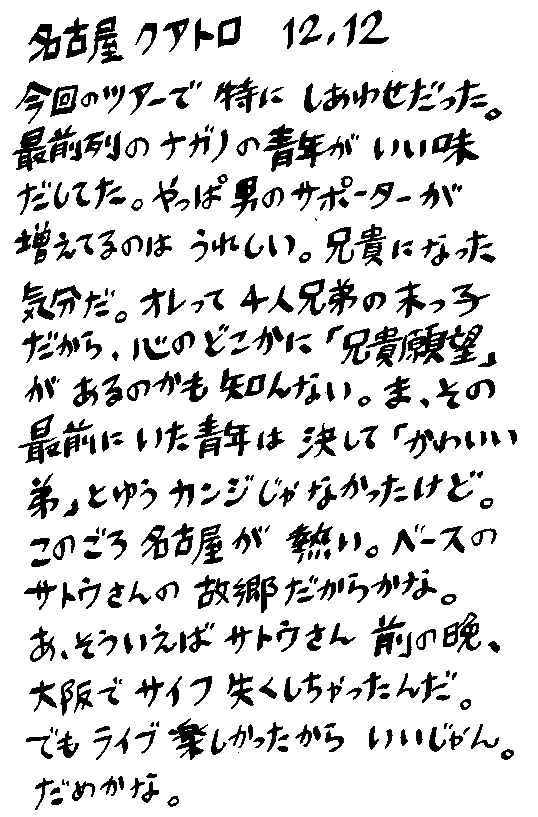 名古屋クアトロ 12.12
今回のツアーで 特に しあわせだった。
最前列のナガノの青年が いい味
だしてた。やっぱ男のサポーターが
増えてるのは うれしい。兄貴になった
気分だ。オレって 4人兄弟の末っ子
だから、心のどこかに「兄貴願望」
が あるのかも 知んない。ま、その
最前に いた青年は 決して「かわいい
弟」とゆう カンジじゃなかったけど。
このごろ 名古屋が 熱い。ベースの
サトウさんの 故郷だからかな。
あ、そういえば サトウさん 前の晩、
大阪で サイフ 失くしちゃったんだ。
でも ライブ 楽しかったから いいじゃん。
だめかな。